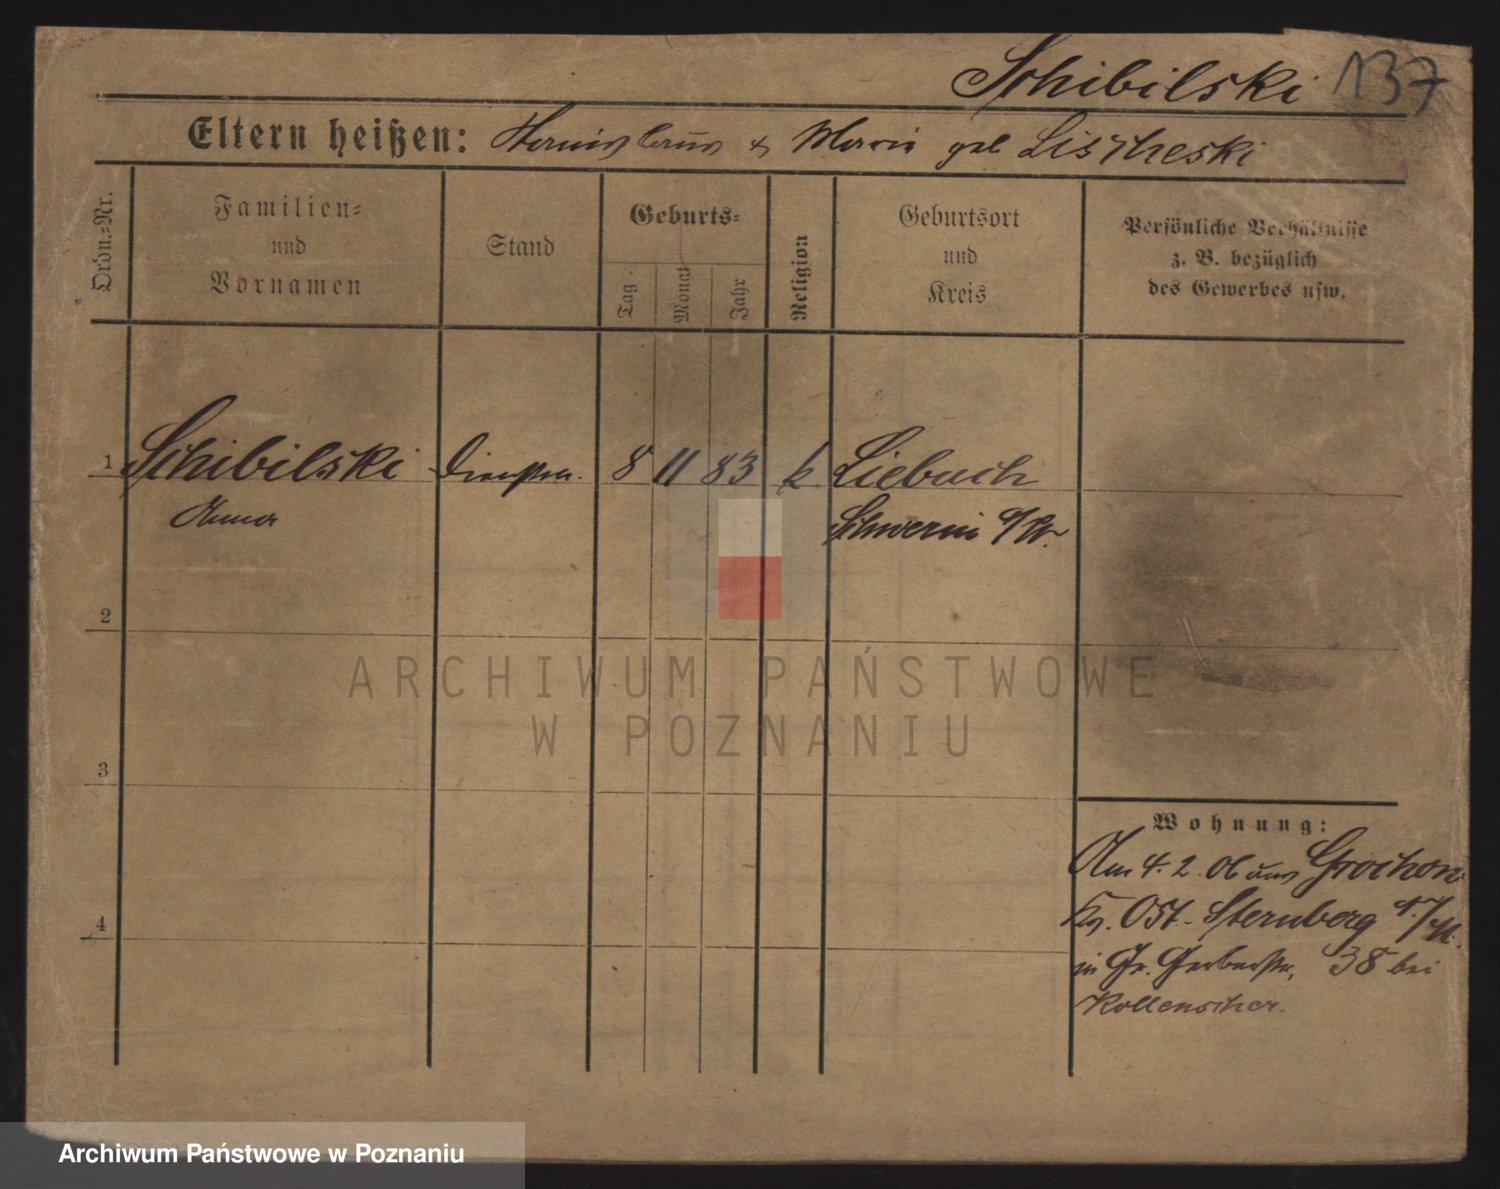 Schibilski 137
Eltern heißen: Stanislaus & Maria geb Lischeski
Ordn.-Nr.
Familien-
und
Vornamen
Stand
Geburts-
Tag
Monat
Jahr
Religion
Geburtsort
und
Kreis
Persönliche Verhältnisse
z. B. bezüglich
des Gewerbes usw.
1 Schibilski Dienstm. 8 11 83 k. Liebuch
Anna Schwerin a/W.
2
3
4
Wohnung:
Am 4. 2. 06 aus Grochow
Kr. Ost-Sternberg
in Gr. Gerberstr. 38 bei
Kollenscher.
ARCHIWUM PAŃSTWOWE
W POZNANIU
Archiwum Państwowe w Poznaniu